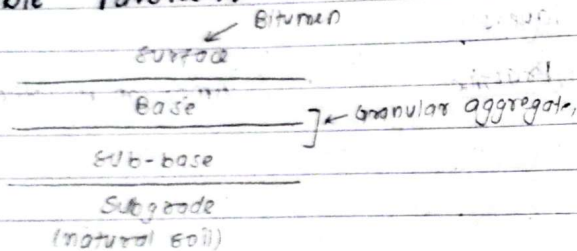 Bitumen
Surface
Base
Granular aggregate,
Sub-base
Subgrade
(natural soil)